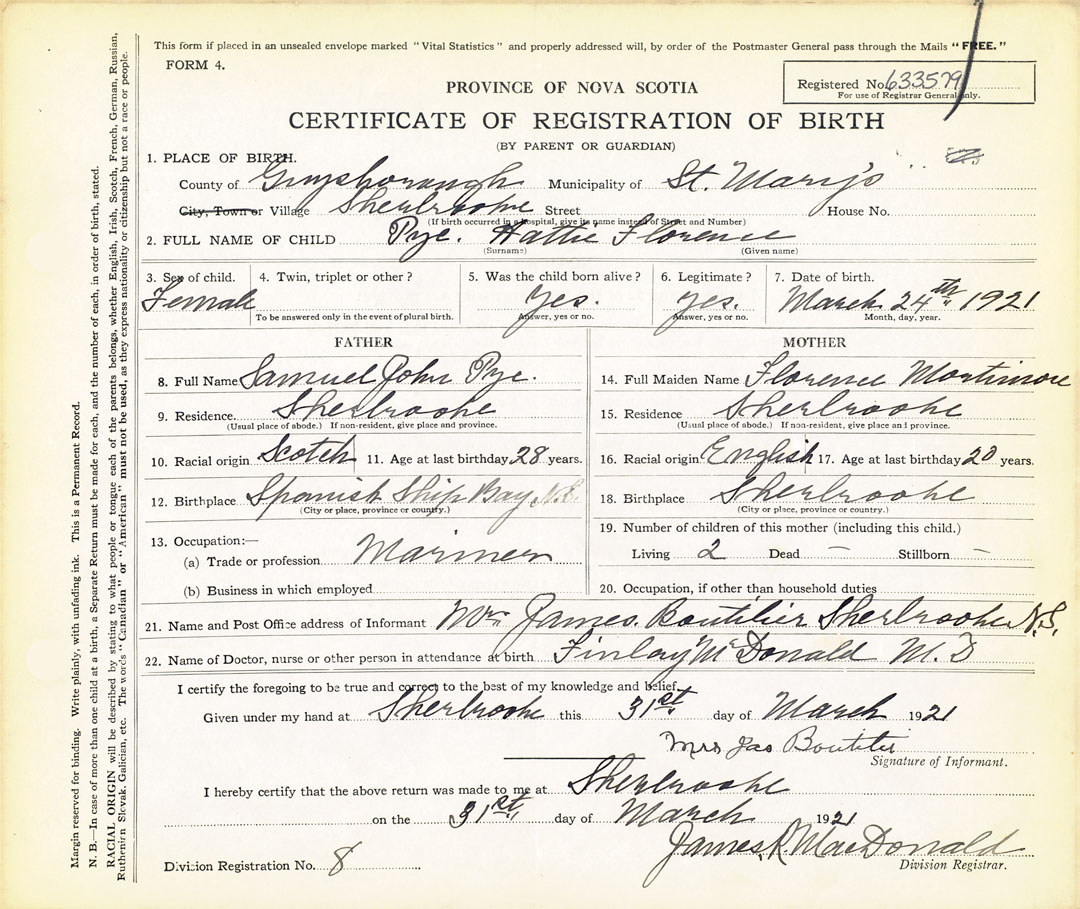 This form if placed in an unsealed envelope marked "Vital Statistics" and properly addressed will, by order of the Postmaster General pass through the Mails "FREE."
FORM 4.
Registered No. 633579
For use of Registrar General only.
PROVINCE OF NOVA SCOTIA
CERTIFICATE OF REGISTRATION OF BIRTH
(BY PARENT OR GUARDIAN)
1. PLACE OF BIRTH.
County of Guysborough Municipality of St. Mary's
City, Town or Village Sherbrooke Street House No.
(If birth occurred in a hospital, give its name instead of Street and Number)
2. FULL NAME OF CHILD Pye. Hattie Florence
(Surname) (Given name)
3. Sex of child. 4. Twin, triplet or other? 5. Was the child born alive? 6. Legitimate? 7. Date of birth.
Female Yes. Yes. March. 24th 1921
To be answered only in the event of plural birth. Answer, yes or no. Answer, yes or no. Month, day, year.
FATHER MOTHER
8. Full Name Samuel John Pye. 14. Full Maiden Name Florence Mortimore
9. Residence. Sherbrooke 15. Residence Sherbrooke
(Usual place of abode.) If non-resident, give place and province. (Usual place of abode.) If non-resident, give place and province.
10. Racial origin Scotch 11. Age at last birthday 28 years. 16. Racial origin English 17. Age at last birthday 20 years.
12. Birthplace Spanish Ship Bay, N.S. 18. Birthplace Sherbrooke
(City or place, province or country.) (City or place, province or country.)
13. Occupation:— 19. Number of children of this mother (including this child.)
(a) Trade or profession Mariner Living 2 Dead — Stillborn —
(b) Business in which employed 20. Occupation, if other than household duties
21. Name and Post Office address of Informant Mrs James Boutilier Sherbrooke N.S.
22. Name of Doctor, nurse or other person in attendance at birth Finlay McDonald M.D
I certify the foregoing to be true and correct to the best of my knowledge and belief.
Given under my hand at Sherbrooke this 31st day of March 1921
Mrs Jas Boutilier
Signature of Informant.
I hereby certify that the above return was made to me at Sherbrooke
on the 31st day of March 1921
James R. MacDonald
Division Registration No. 8 Division Registrar.
Margin reserved for binding. Write plainly, with unfading ink. This is a Permanent Record.
N. B.—In case of more than one child at a birth, a Separate Return must be made for each, and the number of each, in order of birth, stated.
RACIAL ORIGIN will be described by stating to what people or tongue each of the parents belongs, whether English, Irish, Scotch, French, German, Russian,
Ruthenirn Slovak. Galician, etc. The words "Canadian" or "American" must not be used, as they express nationality or citizenship but not a race or people.